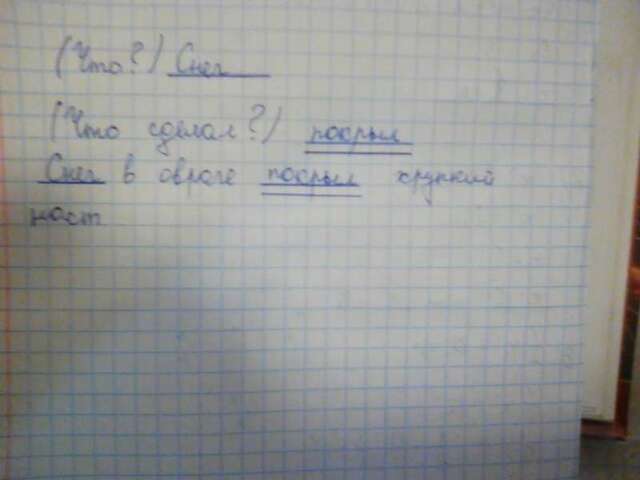 (Что?) Снег
(Что сделал?) покрыл
Снег в овраге покрыл хрупкий
наст